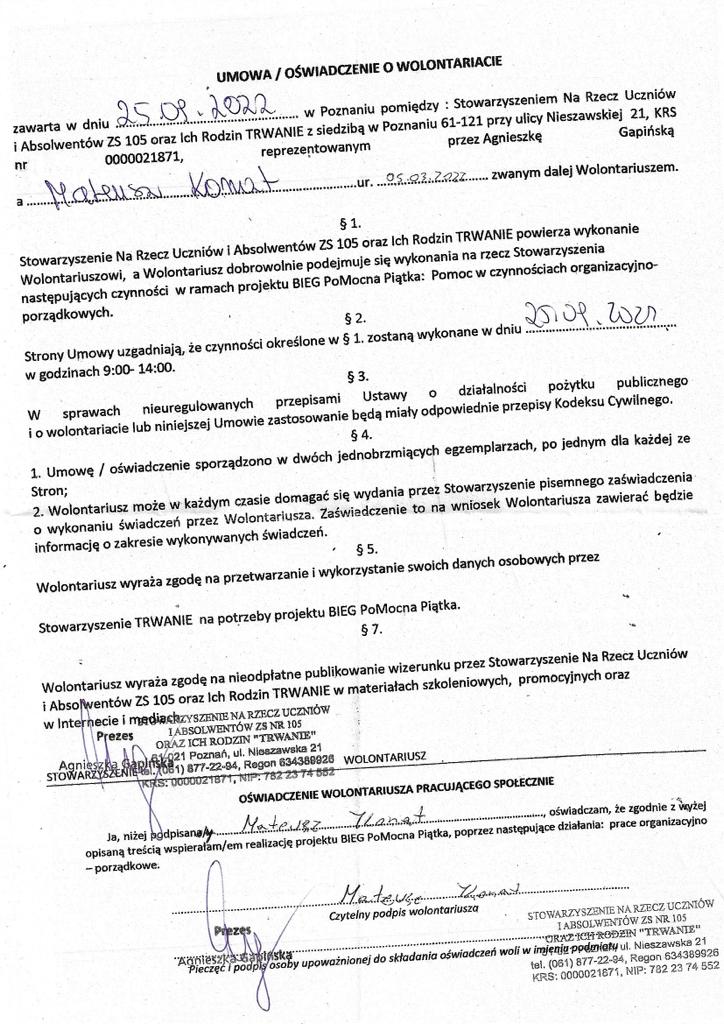 UMOWA / OŚWIADCZENIE O WOLONTARIACIE
zawarta w dniu 25.09.2022 w Poznaniu pomiędzy : Stowarzyszeniem Na Rzecz Uczniów
i Absolwentów ZS 105 oraz Ich Rodzin TRWANIE z siedzibą w Poznaniu 61-121 przy ulicy Nieszawskiej 21, KRS
nr 0000021871, reprezentowanym przez Agnieszkę Gapińską
a Mateusz ur. 05.03.2022 zwanym dalej Wolontariuszem.
§ 1.
Stowarzyszenie Na Rzecz Uczniów i Absolwentów ZS 105 oraz Ich Rodzin TRWANIE powierza wykonanie
Wolontariuszowi, a Wolontariusz dobrowolnie podejmuje się wykonania na rzecz Stowarzyszenia
następujących czynności w ramach projektu BIEG PoMocna Piątka: Pomoc w czynnościach organizacyjno-
porządkowych.
§ 2.
Strony Umowy uzgadniają, że czynności określone w § 1. zostaną wykonane w dniu
w godzinach 9:00- 14:00.
§ 3.
W sprawach nieuregulowanych przepisami Ustawy o działalności pożytku publicznego
i o wolontariacie lub niniejszej Umowie zastosowanie będą miały odpowiednie przepisy Kodeksu Cywilnego.
§ 4.
1. Umowę / oświadczenie sporządzono w dwóch jednobrzmiących egzemplarzach, po jednym dla każdej ze
Stron;
2. Wolontariusz może w każdym czasie domagać się wydania przez Stowarzyszenie pisemnego zaświadczenia
o wykonaniu świadczeń przez Wolontariusza. Zaświadczenie to na wniosek Wolontariusza zawierać będzie
informację o zakresie wykonywanych świadczeń.
§ 5.
Wolontariusz wyraża zgodę na przetwarzanie i wykorzystanie swoich danych osobowych przez
Stowarzyszenie TRWANIE na potrzeby projektu BIEG PoMocna Piątka.
§ 7.
Wolontariusz wyraża zgodę na nieodpłatne publikowanie wizerunku przez Stowarzyszenie Na Rzecz Uczniów
i Absolwentów ZS 105 oraz Ich Rodzin TRWANIE w materiałach szkoleniowych, promocyjnych oraz
w Internecie i mediach
STOWARZYSZENIE NA RZECZ UCZNIÓW
I ABSOLWENTÓW ZS NR 105
ORAZ ICH RODZIN "TRWANIE"
61-021 Poznań, ul. Nieszawska 21
tel. (061) 877-22-94, Regon 634389926
KRS: 0000021871, NIP: 782 23 74 552
Prezes
Agnieszka Gapińska
STOWARZYSZENIE WOLONTARIUSZ
OŚWIADCZENIE WOLONTARIUSZA PRACUJĄCEGO SPOŁECZNIE
Ja, niżej podpisana/y Mateusz , oświadczam, że zgodnie z wyżej
opisaną treścią wspierałam/em realizację projektu BIEG PoMocna Piątka, poprzez następujące działania: prace organizacyjno
– porządkowe.
Mateusz
Czytelny podpis wolontariusza
STOWARZYSZENIE NA RZECZ UCZNIÓW
I ABSOLWENTÓW ZS NR 105
ORAZ ICH RODZIN "TRWANIE"
ul. Nieszawska 21
tel. (061) 877-22-94, Regon 634389926
KRS: 0000021871, NIP: 782 23 74 552
Prezes
Agnieszka Gapińska
Pieczęć i podpis osoby upoważnionej do składania oświadczeń woli w imieniu podmiotu